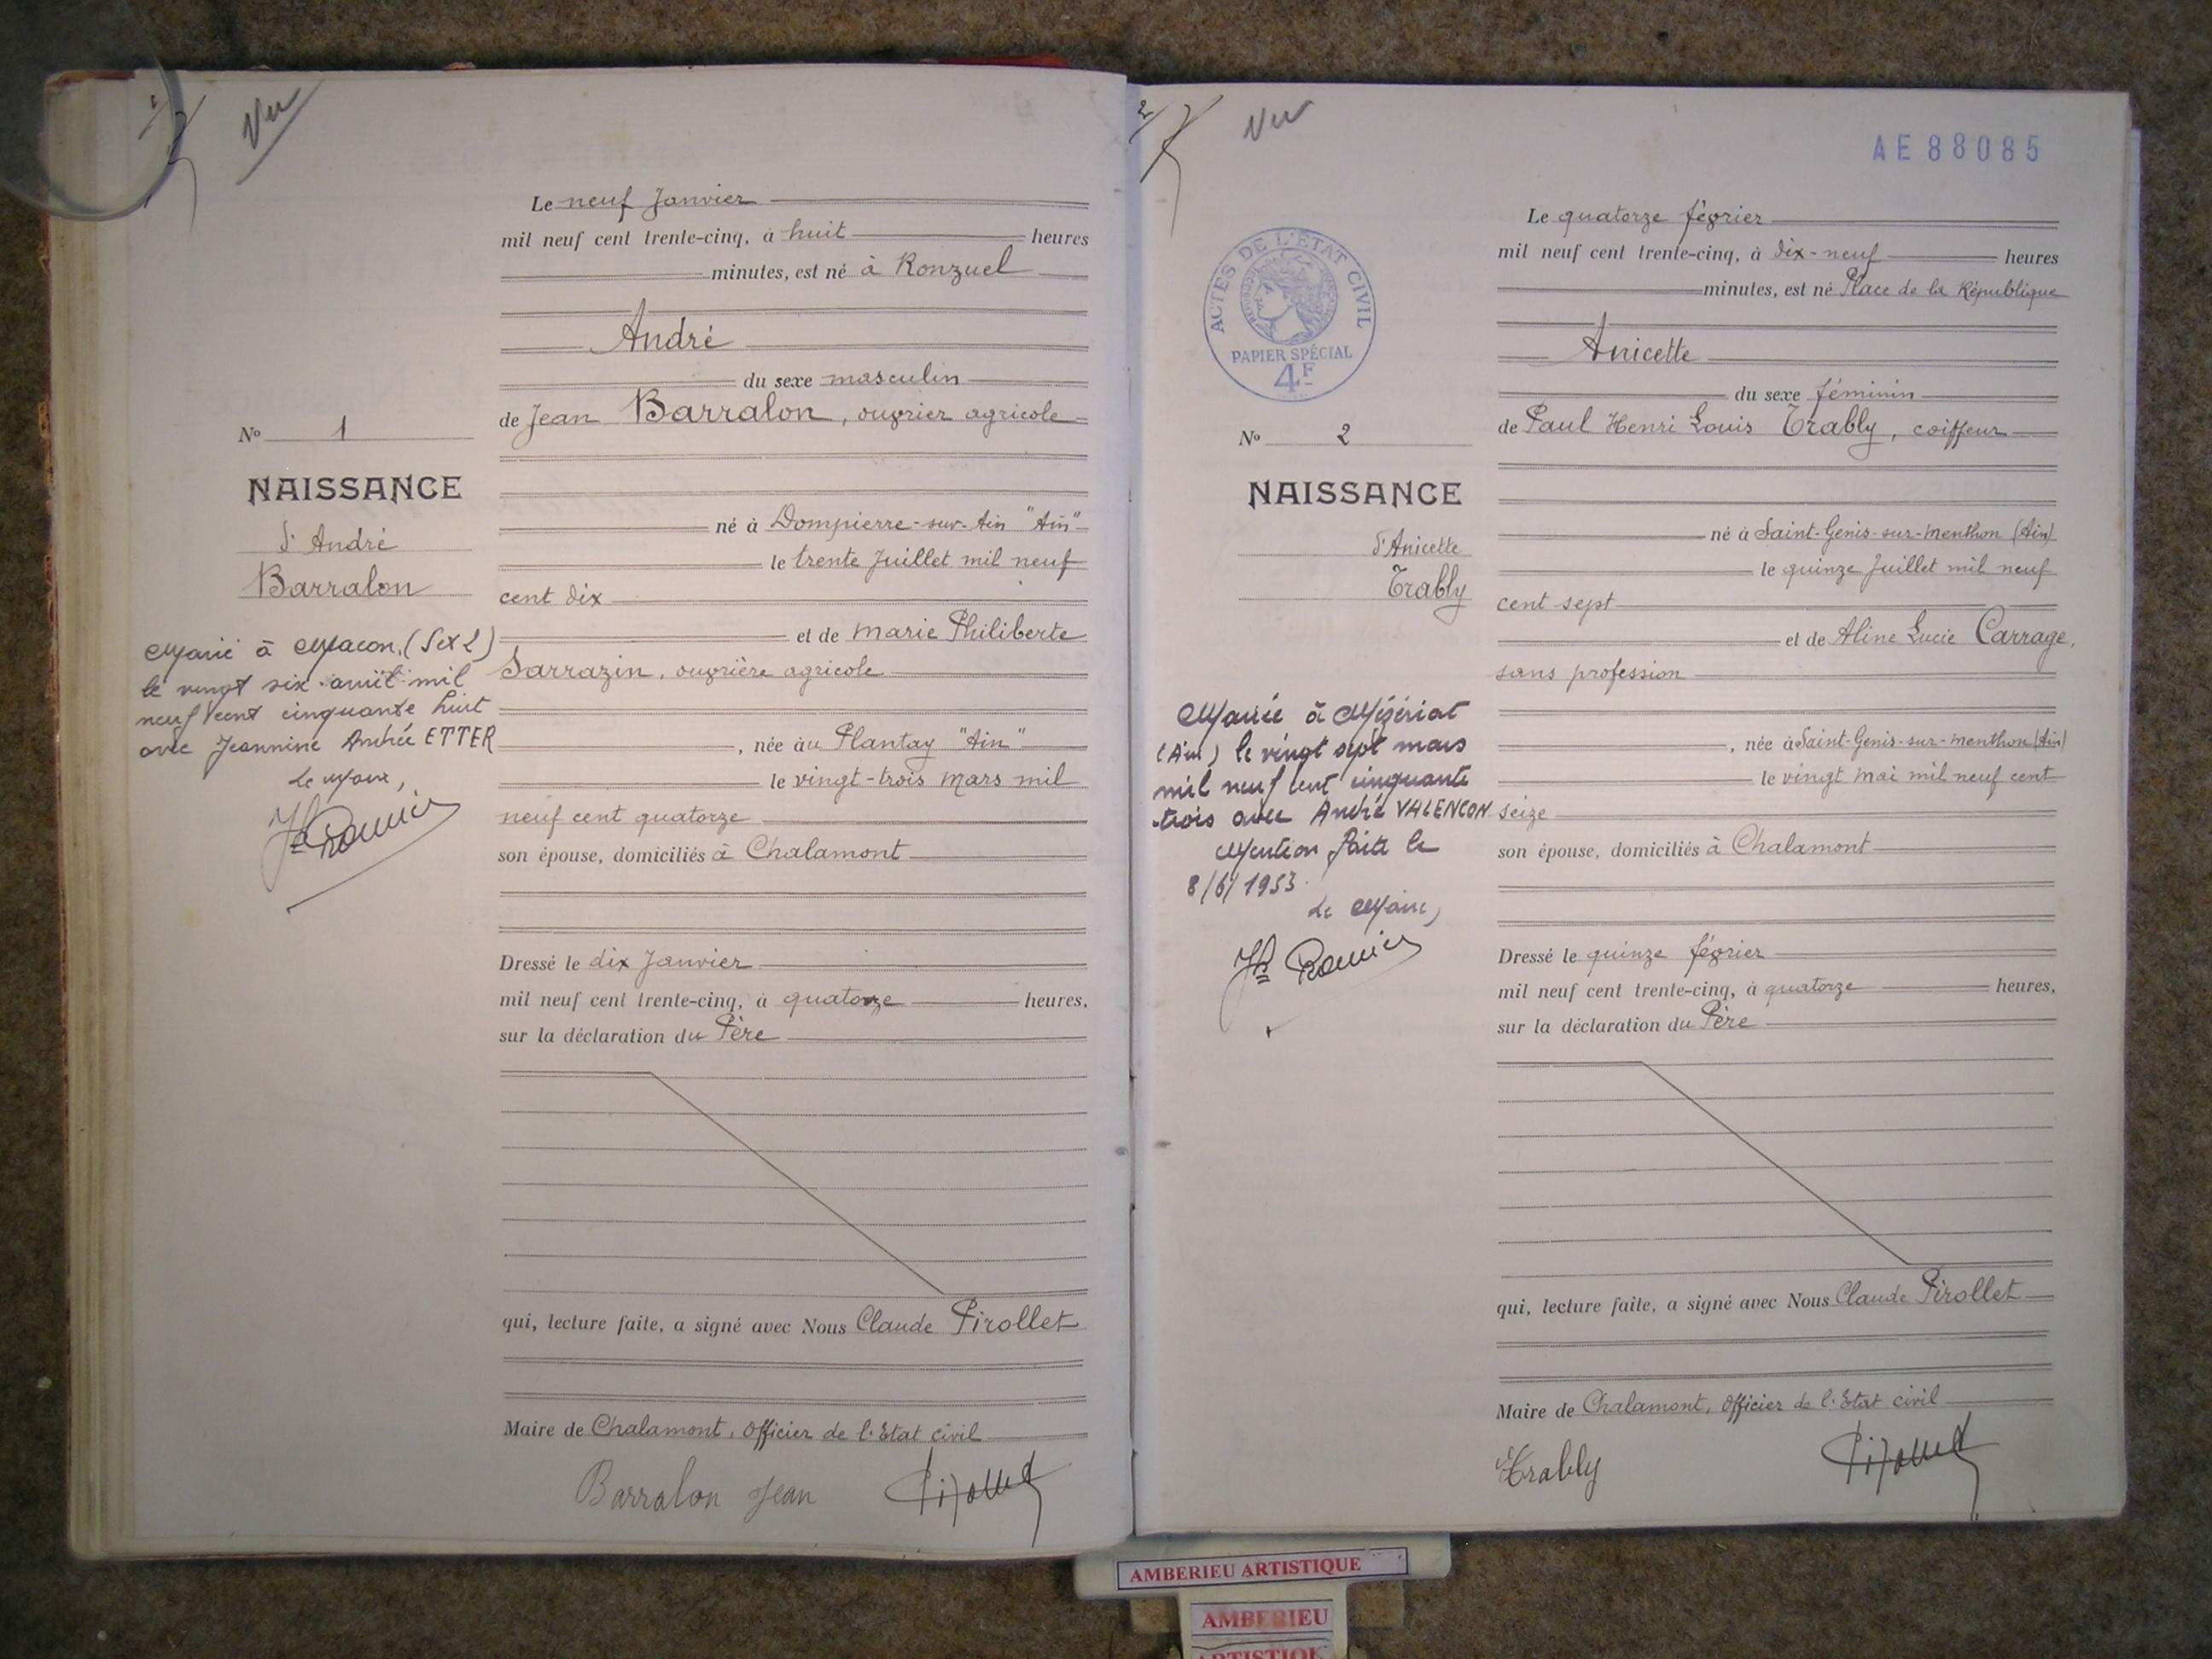 Vu
Le neuf Janvier
mil neuf cent trente-cinq, à huit heures
minutes, est né à Ronzuel
André
du sexe masculin
de Jean Barralon, ouvrier agricole
No 1
NAISSANCE
d'André
Barralon
né à Dompierre-sur-Ain "Ain"
le trente Juillet mil neuf
cent dix
et de Marie Philiberte
Sarrazin, ouvrière agricole
, née au Plantay "Ain"
le vingt-trois Mars mil
neuf cent quatorze
son épouse, domiciliés à Chalamont
Marié à Macon (S et L)
le vingt six avril mil
neuf cent cinquante huit
avec Jeannine Andrée ETTER
Le Maire,
Dressé le dix Janvier
mil neuf cent trente-cinq, à quatorze heures,
sur la déclaration du Père
qui, lecture faite, a signé avec Nous Claude Pirollet
Maire de Chalamont, Officier de l'Etat civil
Barralon Jean
2
Vu
AE 88085
ACTES DE L'ÉTAT CIVIL
PAPIER SPÉCIAL
4F
Le quatorze février
mil neuf cent trente-cinq, à dix-neuf heures
minutes, est né Place de la République
Anicette
du sexe féminin
de Paul Henri Louis Trably, coiffeur
No 2
NAISSANCE
d'Anicette
Trably
né à Saint-Genis-sur-Menthon (Ain)
le quinze Juillet mil neuf
cent sept
et de Aline Lucie Carrage,
sans profession
, née à Saint-Genis-sur-Menthon (Ain)
le vingt Mai mil neuf cent
seize
son épouse, domiciliés à Chalamont
Mariée à Mézériat
(Ain) le vingt sept mars
mil neuf cent cinquante
trois avec André VALENCON
Mention faite le
8/6/1953.
Le Maire,
Dressé le quinze février
mil neuf cent trente-cinq, à quatorze heures,
sur la déclaration du Père
qui, lecture faite, a signé avec Nous Claude Pirollet
Maire de Chalamont, Officier de l'Etat civil
Trably
AMBERIEU ARTISTIQUE
AMBERIEU